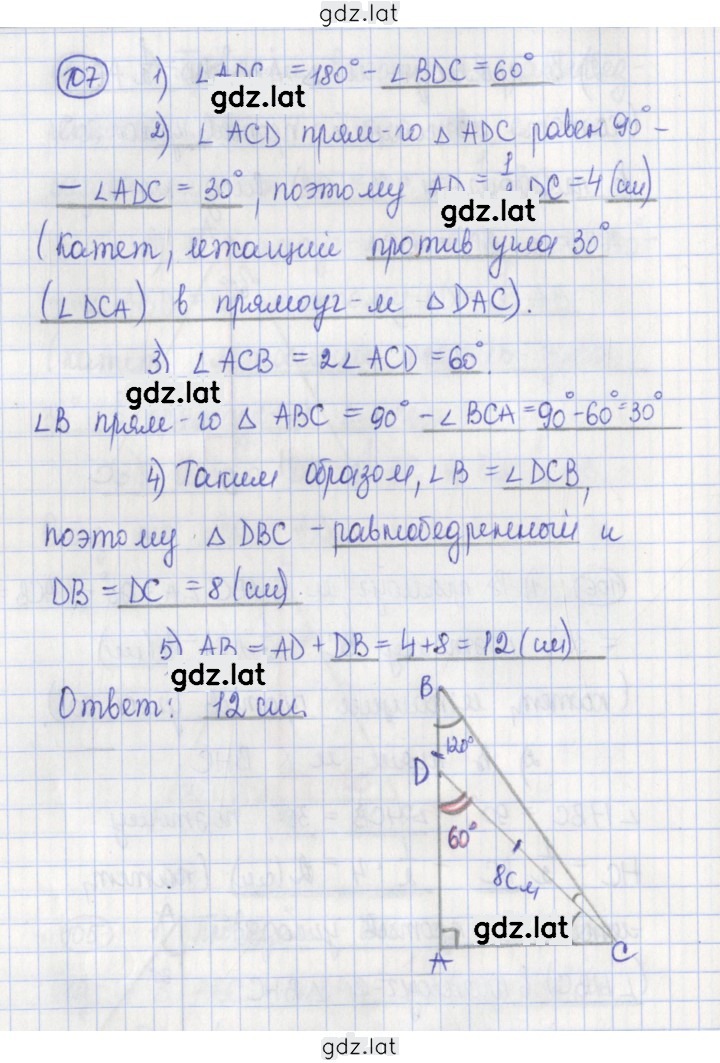 gdz.lat
107 1) ∠ADC = 180° - ∠BDC = 60°
gdz.lat
2) ∠ ACD прям-го △ ADC равен 90° -
- ∠ADC = 30°, поэтому AD = DC = 4 (см)
gdz.lat
(Катет, лежащий против угла 30°
(∠DCA) в прямоуг-м △ DAC).
3) ∠ACB = 2∠ACD = 60°.
gdz.lat
∠B прям-го △ ABC = 90° - ∠BCA = 90° - 60° = 30°
4) Таким образом, ∠B = ∠DCB,
поэтому △ DBC - равнобедренный и
DB = DC = 8 (см).
5) AB = AD + DB = 4 + 8 = 12 (см)
gdz.lat
Ответ: 12 см.
B
120°
D
60°
8 см
gdz.lat
A C
gdz.lat